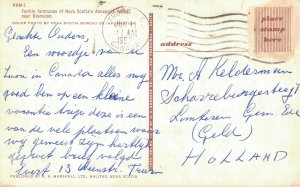 HRM-1
Fertile farmlands of Nova Scotia's Annapolis Valley
near Blomidon.
COLOR PHOTO BY NOVA SCOTIA BUREAU OF INFORMATION
place
stamp
here
address
Geachte Ouders,
Een woordje van uw
Zoon in Canada alles nog
goed ben op een kleine
vacanties tripje deze is een
van de vele plaatsen waar
wij geweest zijn hartelijk
gegroet brief volgt
13 Truro
Mr. A Kelderman
Scharenburgersteegt
Lunteren Gem. Ede
(Geld)
HOLLAND
PUBLISHED BY H. R. MARSHALL, LTD., HALIFAX, NOVA SCOTIA